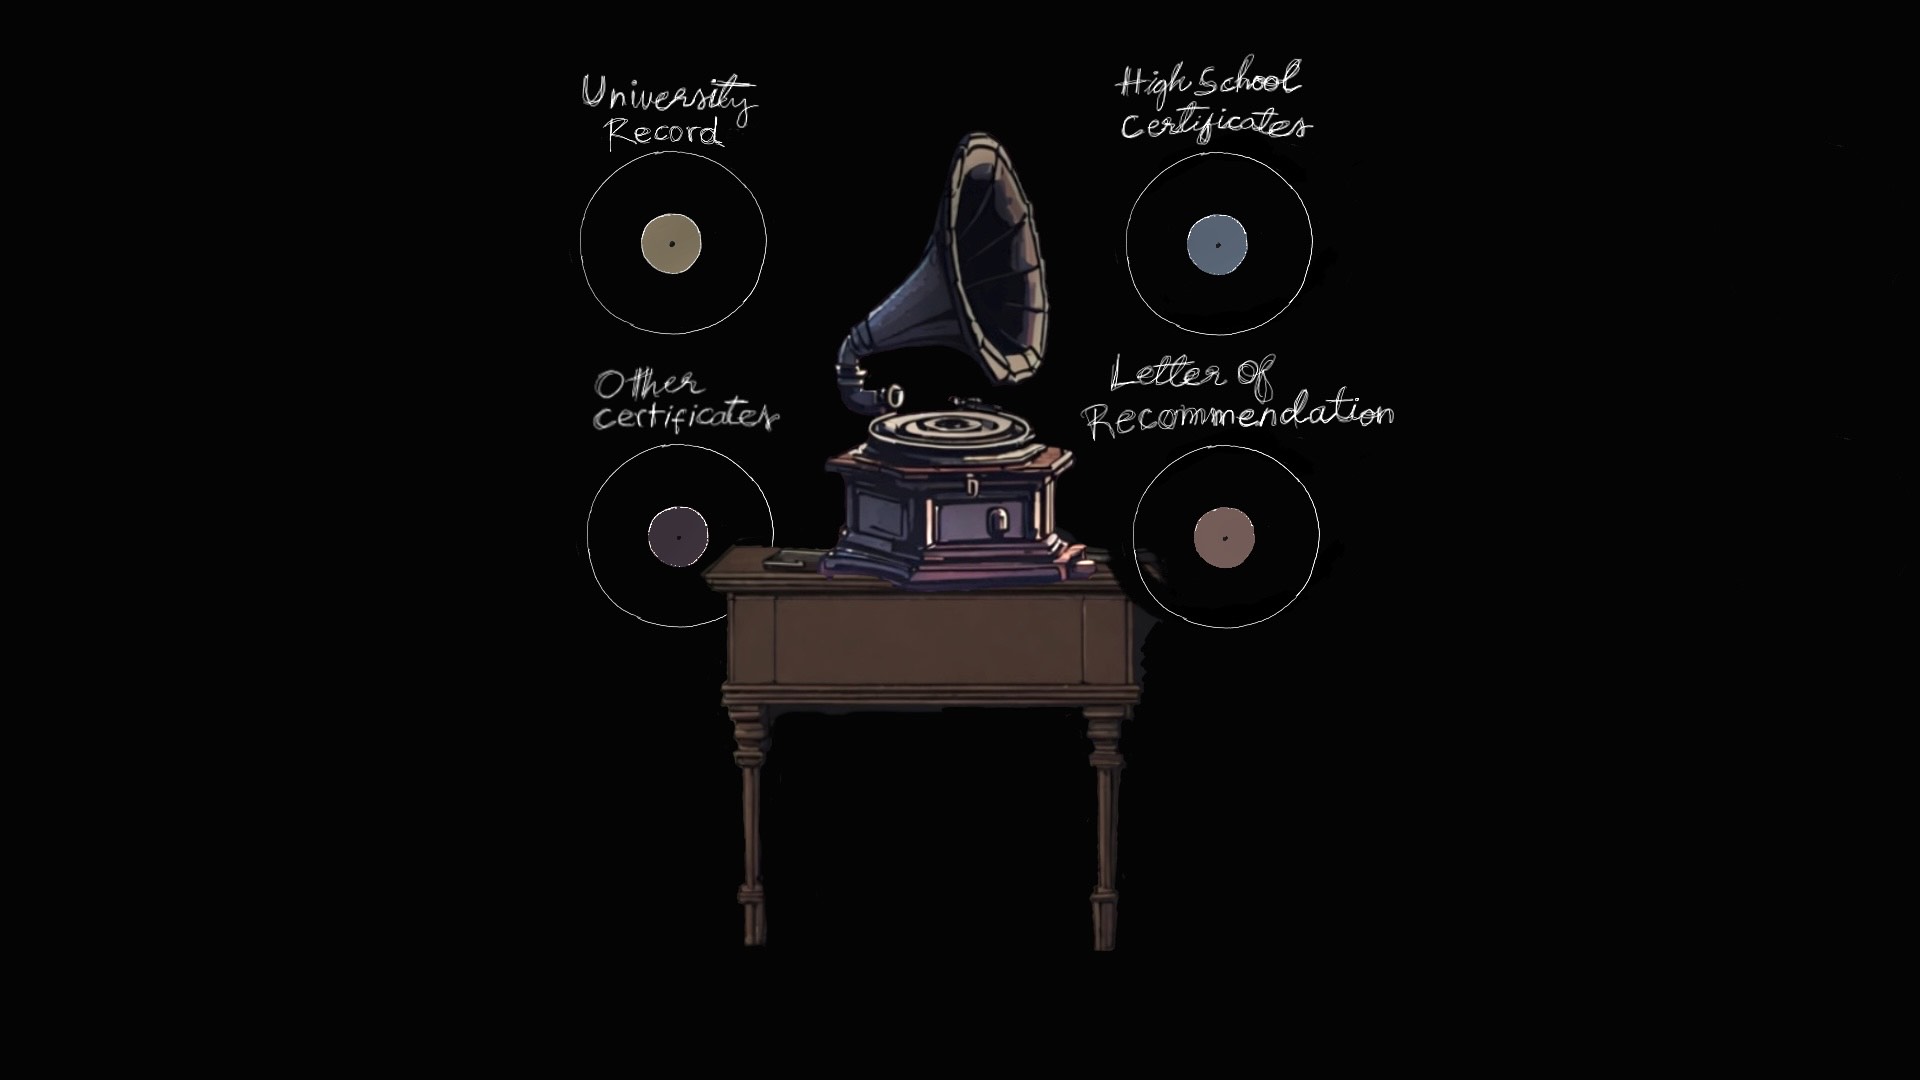 University
Record
High School
Certificates
Other
certificates
Letter of
Recommendation